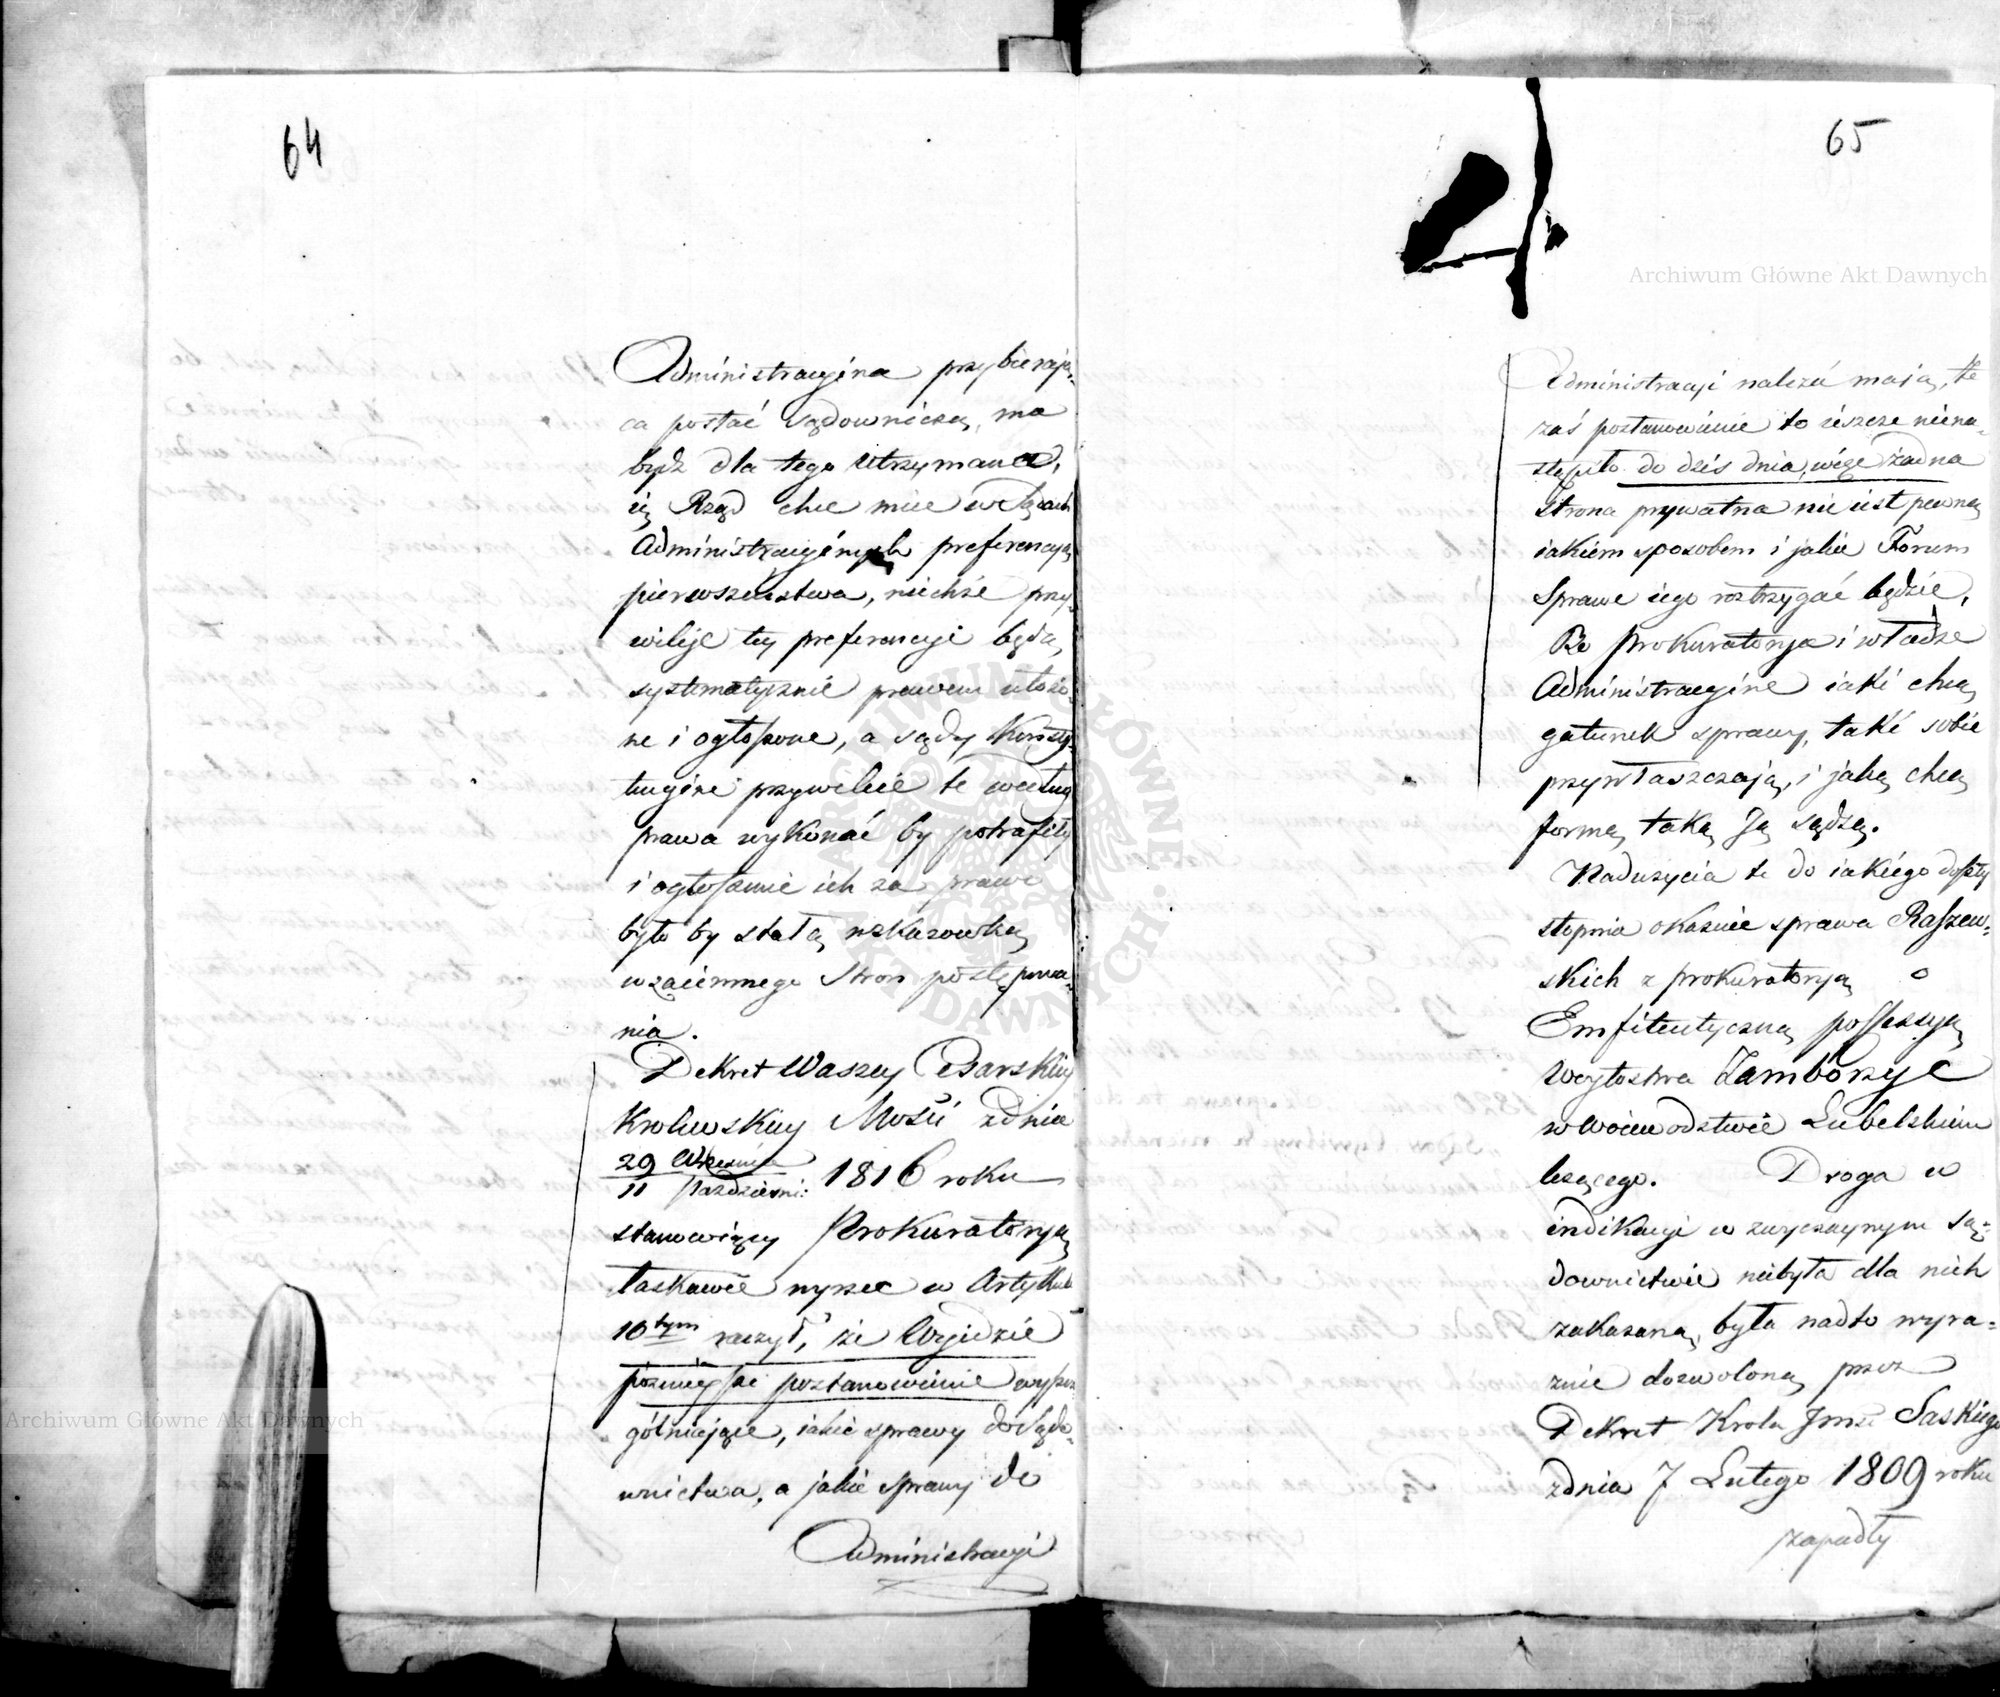 64
Administracyina przybieraią=
ca postać sądowniczą, ma
bydź dla tego utrzymaná,
iż Rząd chce mieć w Sądach
Administracyinych preferencyą
pierwszeństwa, niechże przy=
wileje tey preferencyi będą
systematycznie prawem ułożo=
ne i ogłoszone, a sądy Konsty=
tucyine przywileie te według
prawa wykonać by potrafiły
i ogłoszenie ich za prawo
było by stałą wskazówką
wzaiemnego Stron postępowa=
nia.
Dekret Waszey Cesarskiey
Krolewskiey Mości z dnia
29 Września
11 Październi: 1816 roku
stanowiący Prokuratoryą
łaskawie wyrzec w Artykule
16tym raczył, że Wyidzie
późnieysze postanowienie wyszcze
gólniające, iakie sprawy do Sądo=
wnictwa, a jakie sprawy do
Administracyi
65
Administracyi należeć mają, że
zaś postanowienie to ieszcze niena=
stąpiło do dziś dnia, więc żadna
strona prywatna nie iest pewną
iakiem sposobem i jakie Forum
Sprawe iego roztrzygać będzie,
Bo Prokuratorya i władze
Administracyine iaki chcą
gatunek sprawy, taki sobie
przywłaszczają, i jaką chcą
formą, taką Ją sądzą.
Nadużycia te do iakiego doszły
stopnia okazuie sprawa Raszew=
skich z prokuratoryą o
Emfiteutyczną possessyą
Woytostwa Zamborzyc
w Woiewodztwie Lubelskiem
leżącego. Droga w
indikacyi w zwyczaynym Są=
downictwie niebyła dla nich
zakazaną, była nadto wyra=
źnie dozwoloną przez
Dekret Krola Jmci Saskiego
z dnia 7 Lutego 1809 roku
zapadły
Archiwum Główne Akt Dawnych
Archiwum Główne Akt Dawnych
ARCHIWUM GŁÓWNE AKT DAWNYCH